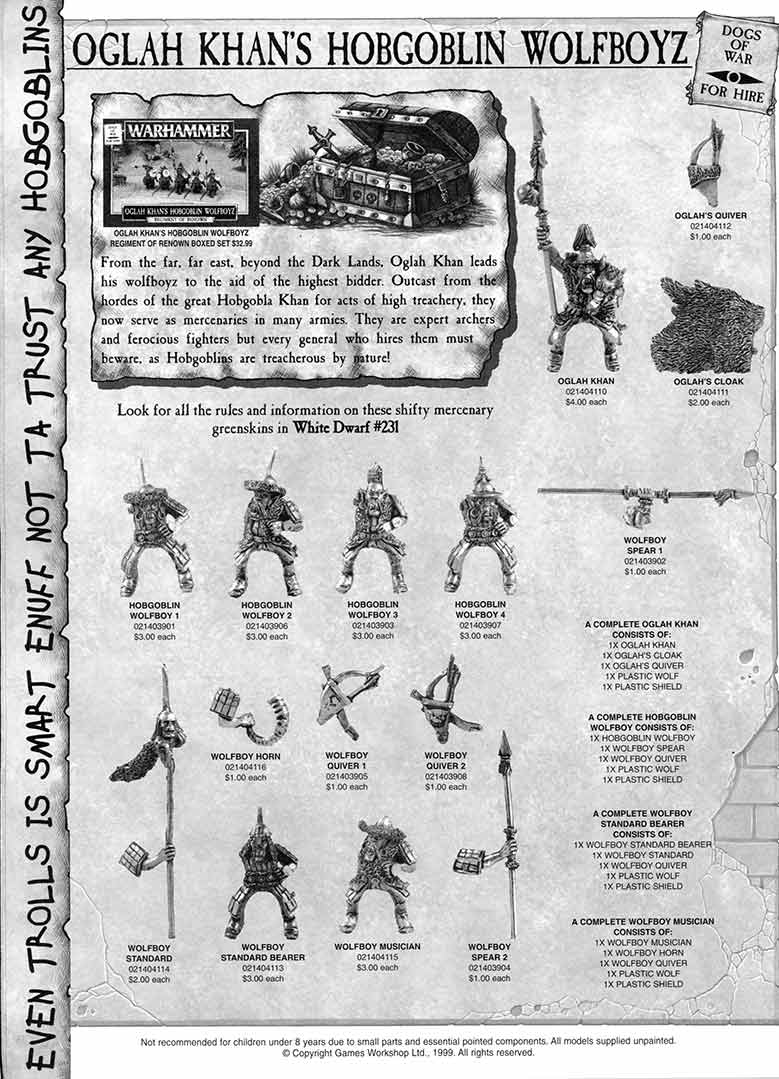 OGLAH KHAN'S HOBGOBLIN WOLFBOYZ
DOGS
OF
WAR
FOR HIRE
EVEN TROLLS IS SMART ENUFF NOT TA TRUST ANY HOBGOBLINS
WARHAMMER
OGLAH KHAN'S HOBGOBLIN WOLFBOYZ
REGIMENT OF RENOWN
OGLAH KHAN'S HOBGOBLIN WOLFBOYZ
REGIMENT OF RENOWN BOXED SET $32.99
From the far, far east, beyond the Dark Lands, Oglah Khan leads
his wolfboyz to the aid of the highest bidder. Outcast from the
hordes of the great Hobgobla Khan for acts of high treachery, they
now serve as mercenaries in many armies. They are expert archers
and ferocious fighters but every general who hires them must
beware, as Hobgoblins are treacherous by nature!
Look for all the rules and information on these shifty mercenary
greenskins in White Dwarf #231
OGLAH KHAN
021404110
$4.00 each
OGLAH'S QUIVER
021404112
$1.00 each
OGLAH'S CLOAK
021404111
$2.00 each
HOBGOBLIN
WOLFBOY 1
021403901
$3.00 each
HOBGOBLIN
WOLFBOY 2
021403906
$3.00 each
HOBGOBLIN
WOLFBOY 3
021403903
$3.00 each
HOBGOBLIN
WOLFBOY 4
021403907
$3.00 each
WOLFBOY
SPEAR 1
021403902
$1.00 each
WOLFBOY HORN
021404116
$1.00 each
WOLFBOY
QUIVER 1
021403905
$1.00 each
WOLFBOY
QUIVER 2
021403908
$1.00 each
WOLFBOY
STANDARD
021404114
$2.00 each
WOLFBOY
STANDARD BEARER
021404113
$3.00 each
WOLFBOY MUSICIAN
021404115
$3.00 each
WOLFBOY
SPEAR 2
021403904
$1.00 each
A COMPLETE OGLAH KHAN
CONSISTS OF:
1X OGLAH KHAN
1X OGLAH'S CLOAK
1X OGLAH'S QUIVER
1X PLASTIC WOLF
1X PLASTIC SHIELD
A COMPLETE HOBGOBLIN
WOLFBOY CONSISTS OF:
1X HOBGOBLIN WOLFBOY
1X WOLFBOY SPEAR
1X WOLFBOY QUIVER
1X PLASTIC WOLF
1X PLASTIC SHIELD
A COMPLETE WOLFBOY
STANDARD BEARER
CONSISTS OF:
1X WOLFBOY STANDARD BEARER
1X WOLFBOY STANDARD
1X WOLFBOY QUIVER
1X PLASTIC WOLF
1X PLASTIC SHIELD
A COMPLETE WOLFBOY MUSICIAN
CONSISTS OF:
1X WOLFBOY MUSICIAN
1X WOLFBOY HORN
1X WOLFBOY QUIVER
1X PLASTIC WOLF
1X PLASTIC SHIELD
Not recommended for children under 8 years due to small parts and essential pointed components. All models supplied unpainted.
© Copyright Games Workshop Ltd., 1999. All rights reserved.